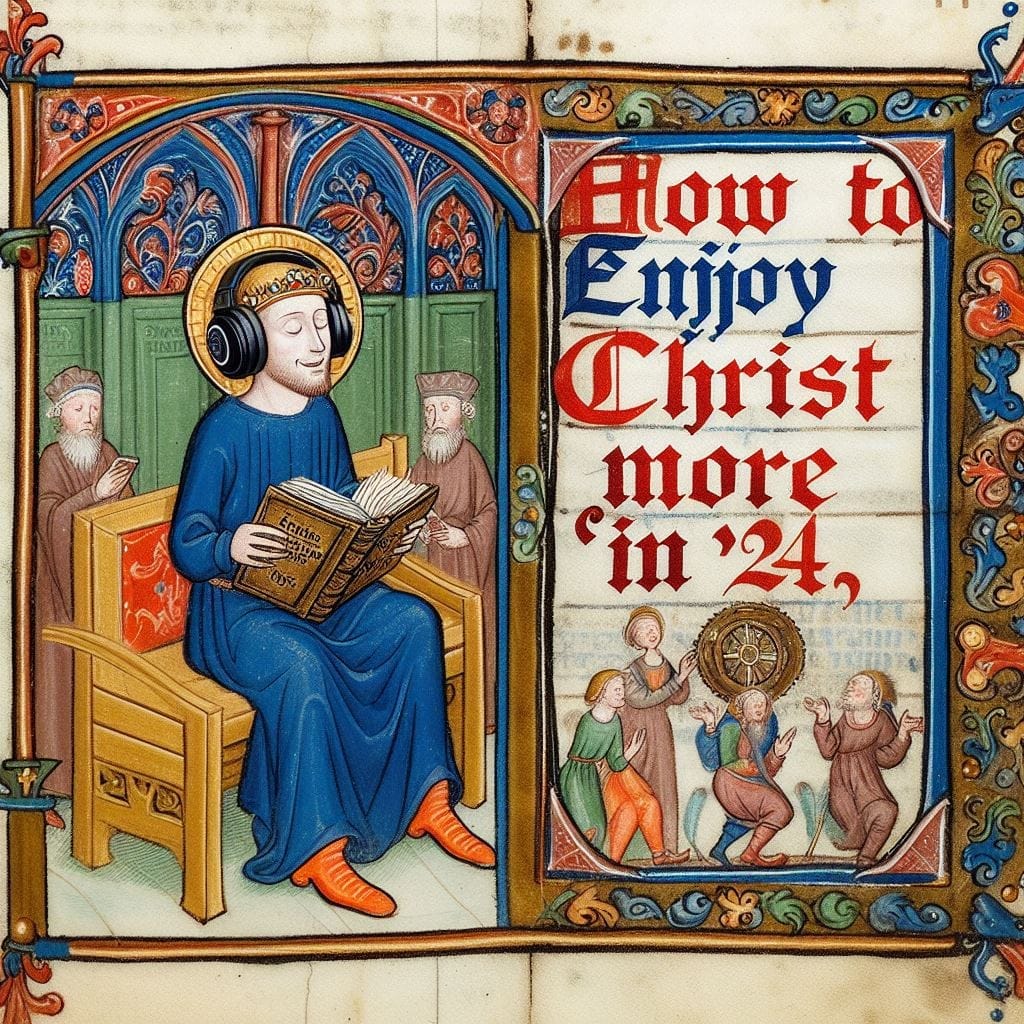 How to
Enjjoy
Christ
more
‘in ’24,